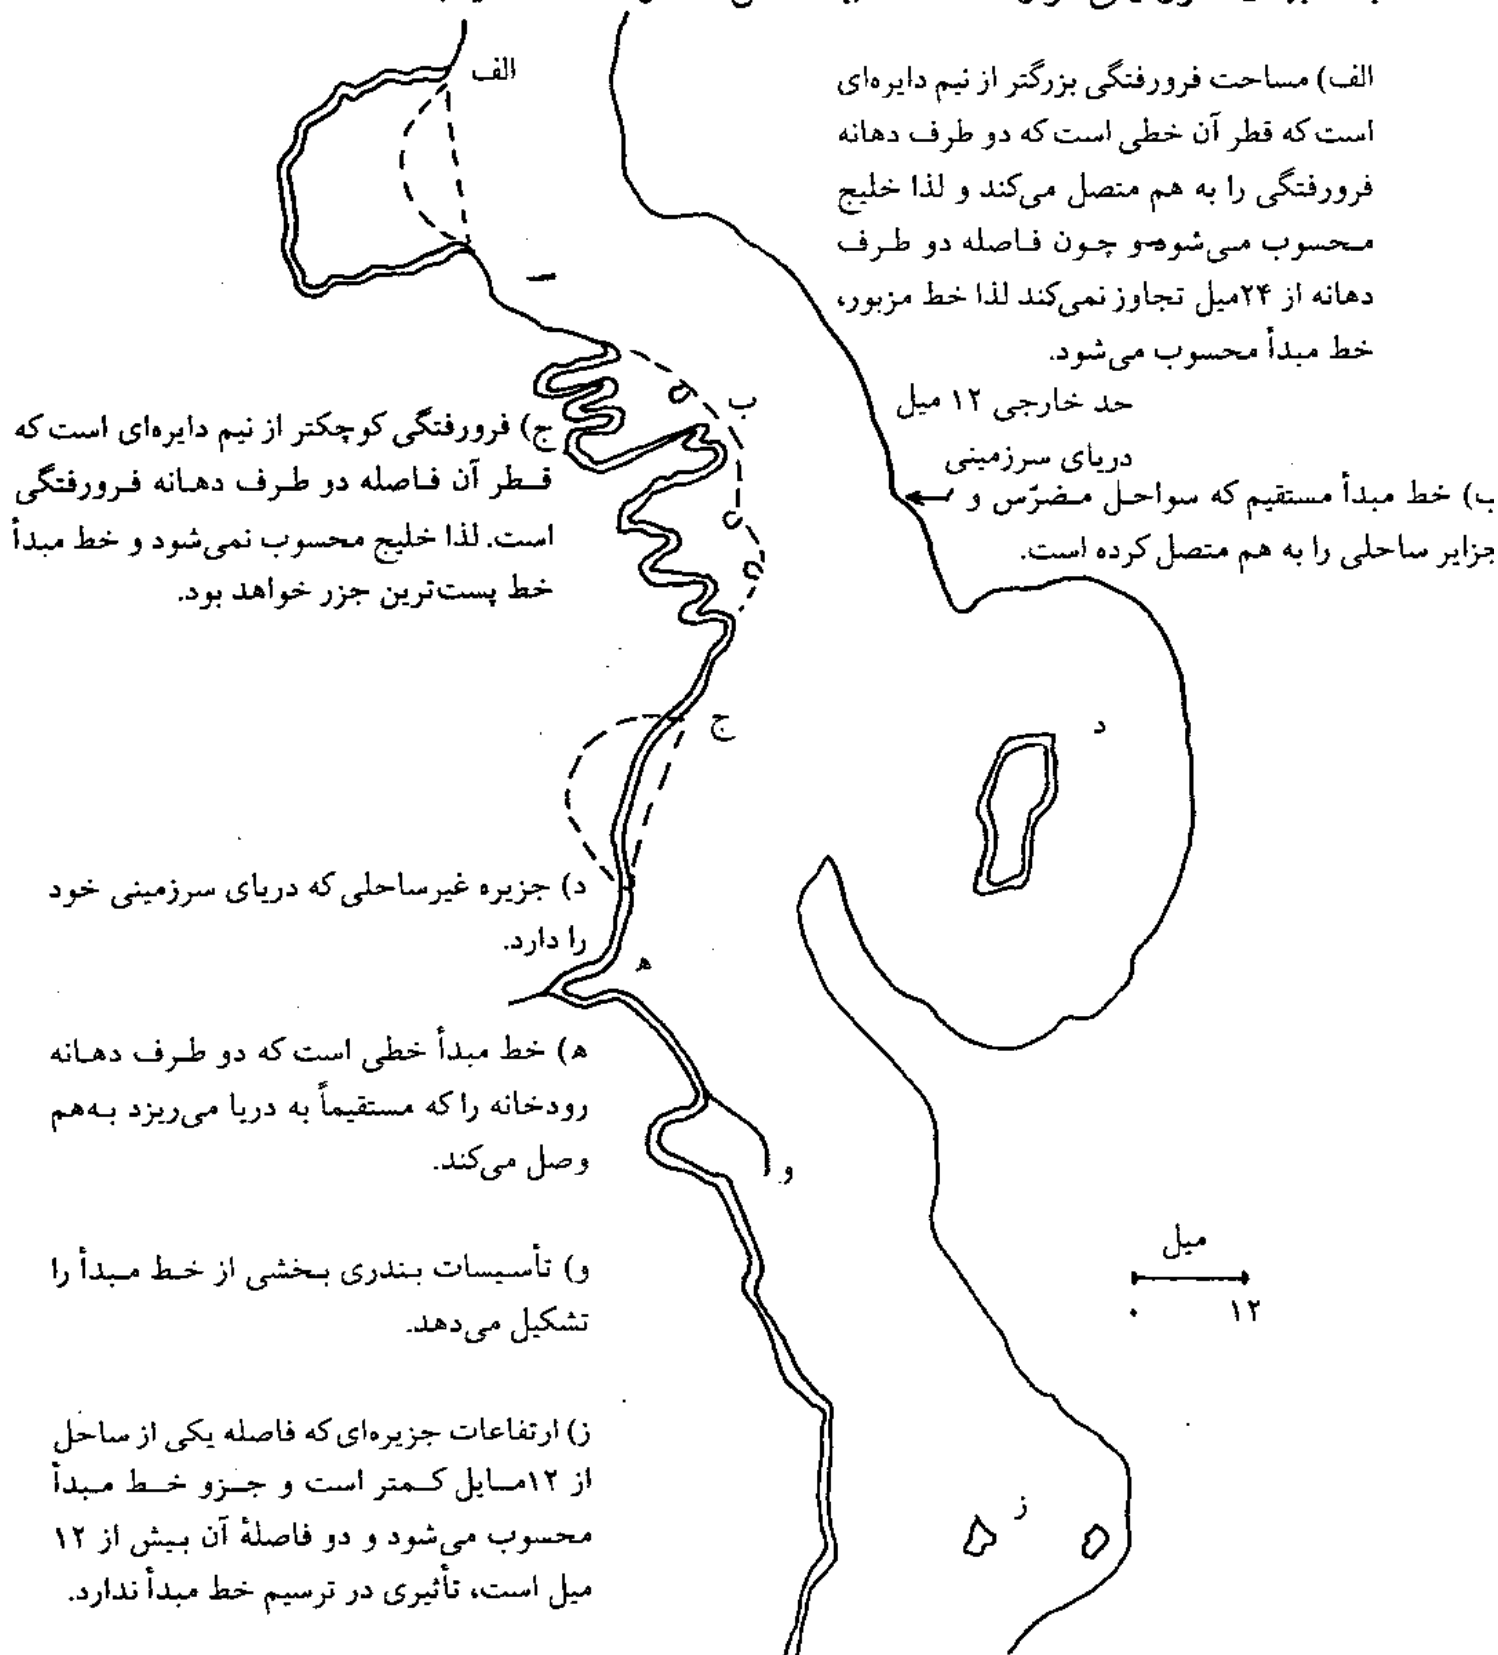 الف
الف) مساحت فرورفتگی بزرگتر از نیم دایره‌ای
است که قطر آن خطی است که دو طرف دهانه
فرورفتگی را به هم متصل می‌کند و لذا خلیج
محسوب می‌شود و چون فاصله دو طرف
دهانه از ۲۴میل تجاوز نمی‌کند لذا خط مزبور،
خط مبدأ محسوب می‌شود.
حد خارجی ۱۲ میل
دریای سرزمینی
ب
ب) خط مبدأ مستقیم که سواحل مضرّس و
جزایر ساحلی را به هم متصل کرده است.
ج) فرورفتگی کوچکتر از نیم دایره‌ای است که
قطر آن فاصله دو طرف دهانه فرورفتگی
است. لذا خلیج محسوب نمی‌شود و خط مبدأ
خط پست‌ترین جزر خواهد بود.
ج
د
د) جزیره غیرساحلی که دریای سرزمینی خود
را دارد.
ه
ه) خط مبدأ خطی است که دو طرف دهانه
رودخانه را که مستقیماً به دریا می‌ریزد به‌هم
وصل می‌کند.
و
و) تأسیسات بندری بخشی از خط مبدأ را
تشکیل می‌دهد.
میل
۰ ۱۲
ز) ارتفاعات جزیره‌ای که فاصله یکی از ساحل
از ۱۲مایل کمتر است و جزو خط مبدأ
محسوب می‌شود و دو فاصلهٔ آن بیش از ۱۲
میل است، تأثیری در ترسیم خط مبدأ ندارد.
ز